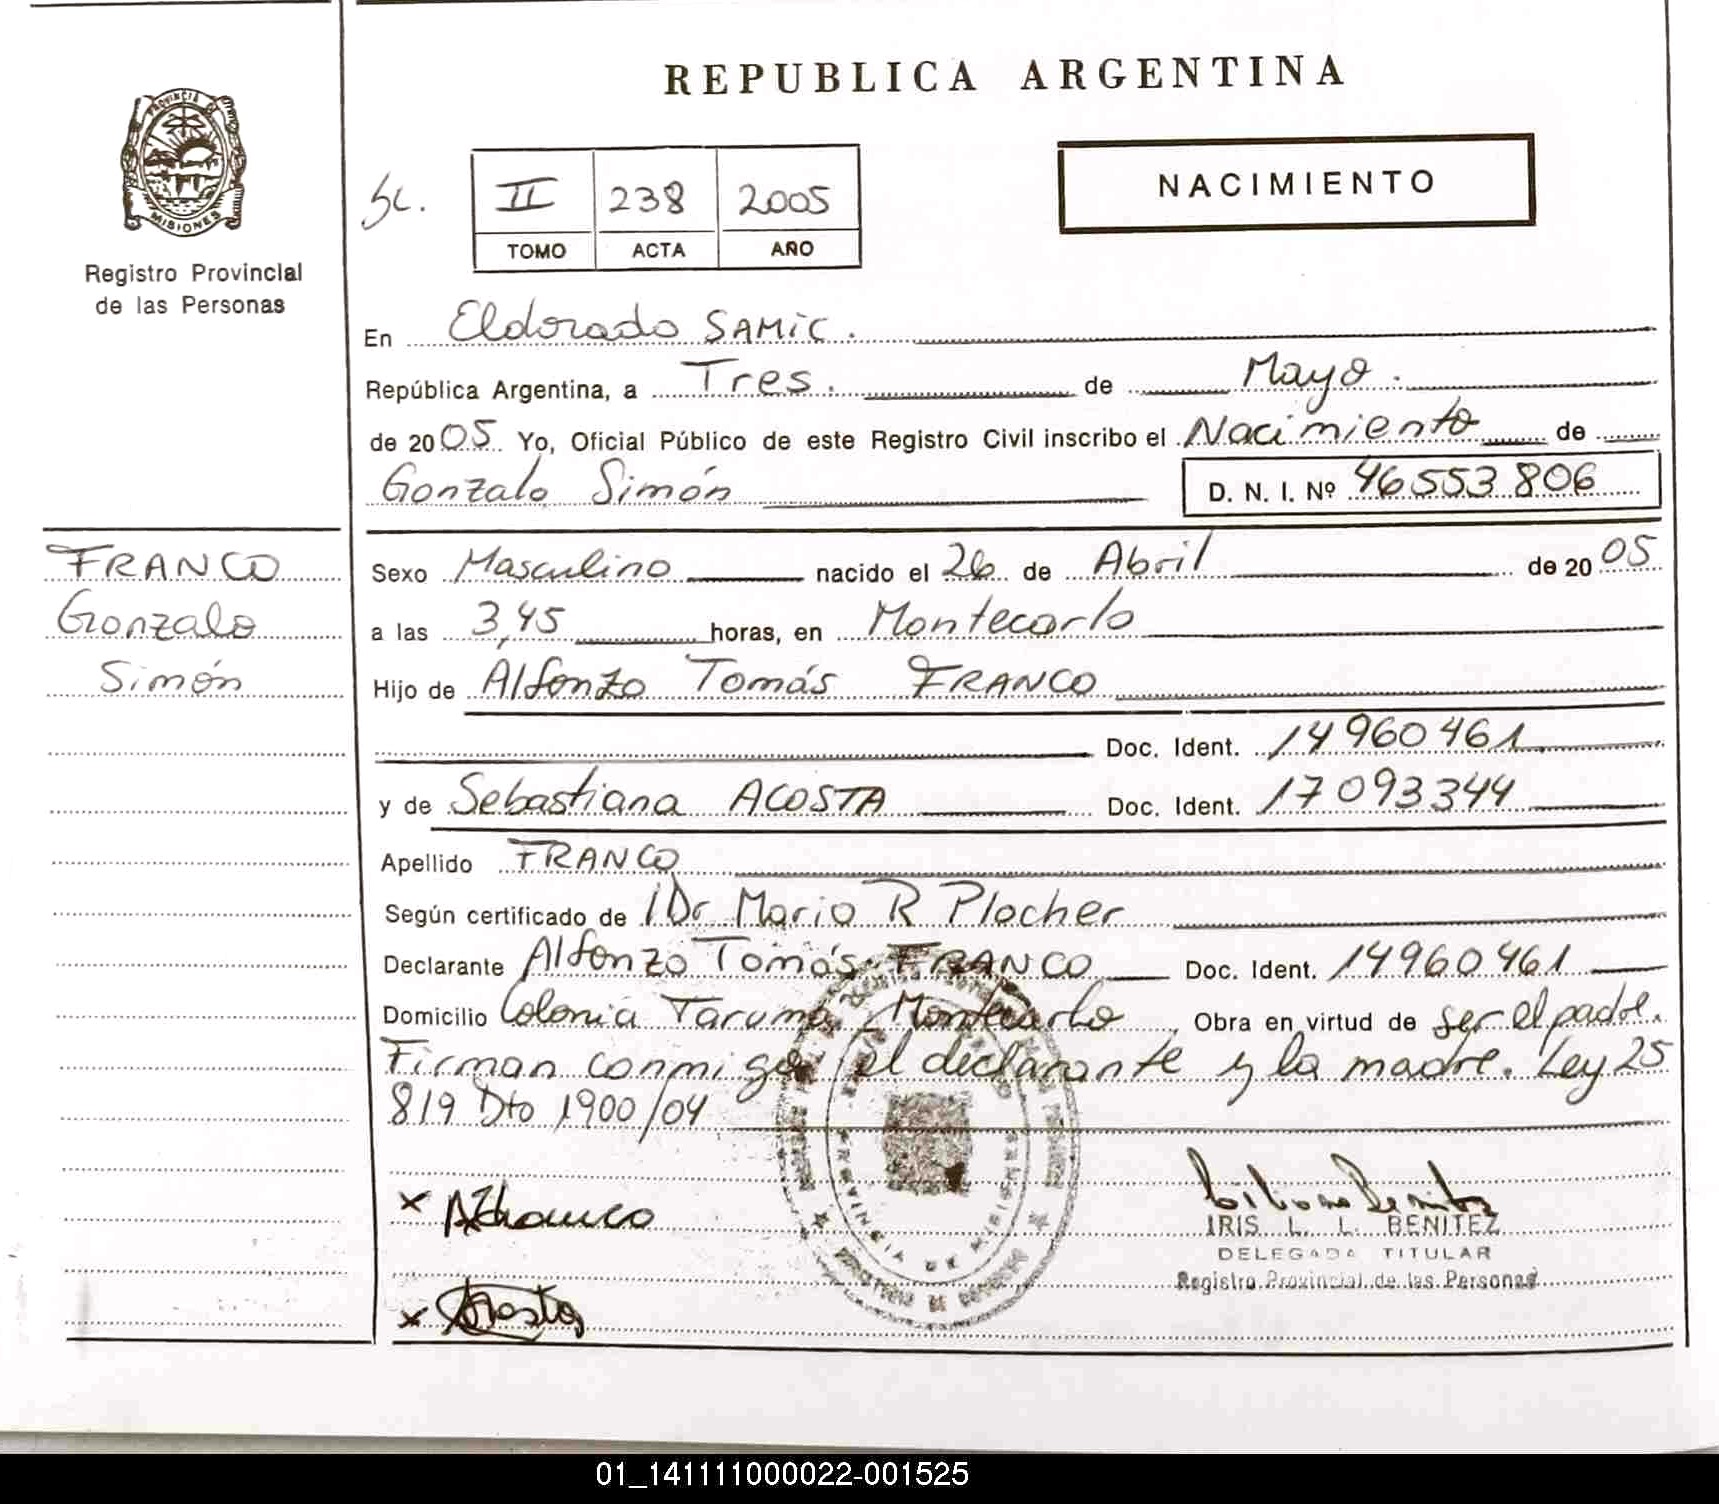 REPUBLICA ARGENTINA
PROVINCIA DE
MISIONES
Registro Provincial
de las Personas
Sc.
II 238 2005
TOMO ACTA AÑO
NACIMIENTO
En Eldorado SAMIC.
República Argentina, a Tres. de Mayo.
de 2005 Yo, Oficial Público de este Registro Civil inscribo el Nacimiento de
Gonzalo Simón D. N. I. Nº 46553806
FRANCO
Gonzalo
Simón
Sexo Masculino nacido el 26 de Abril de 2005
a las 3,45 horas, en Montecarlo
Hijo de Alfonzo Tomás FRANCO
Doc. Ident. 14960461
y de Sebastiana ACOSTA Doc. Ident. 17093344
Apellido FRANCO
Según certificado de Dr Mario R Plocher
Declarante Alfonzo Tomás FRANCO Doc. Ident. 14960461
Domicilio Colonia Taruma, Montecarlo, Obra en virtud de ser el padre.
Firman conmigo el declarante y la madre. Ley 25
819 Dto 1900/04
PROVINCIA DE MISIONES
x
IRIS L. L. BENITEZ
DELEGADA TITULAR
Registro Provincial de las Personas
x Acosta
01_141111000022-001525